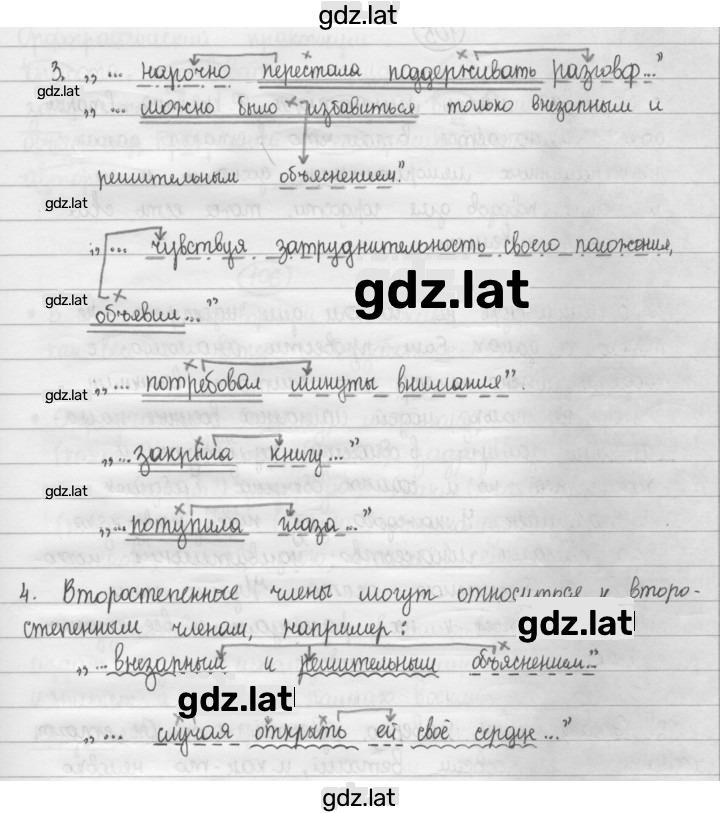 gdz.lat
3. „... нарочно перестала поддерживать разговор..."
gdz.lat
„... можно было избавиться только внезапным и
решительным объяснением."
gdz.lat
„... чувствуя затруднительность своего положения,
gdz.lat
gdz.lat
объявил..."
„... потребовал минуты внимания".
„... закрыла книгу..."
gdz.lat
„... потупила глаза..."
4. Второстепенные члены могут относиться к второ-
gdz.lat
степенным членам, например:
„... внезапный и решительным объяснением..."
gdz.lat
„... случая открыть ей своё сердце..."
gdz.lat